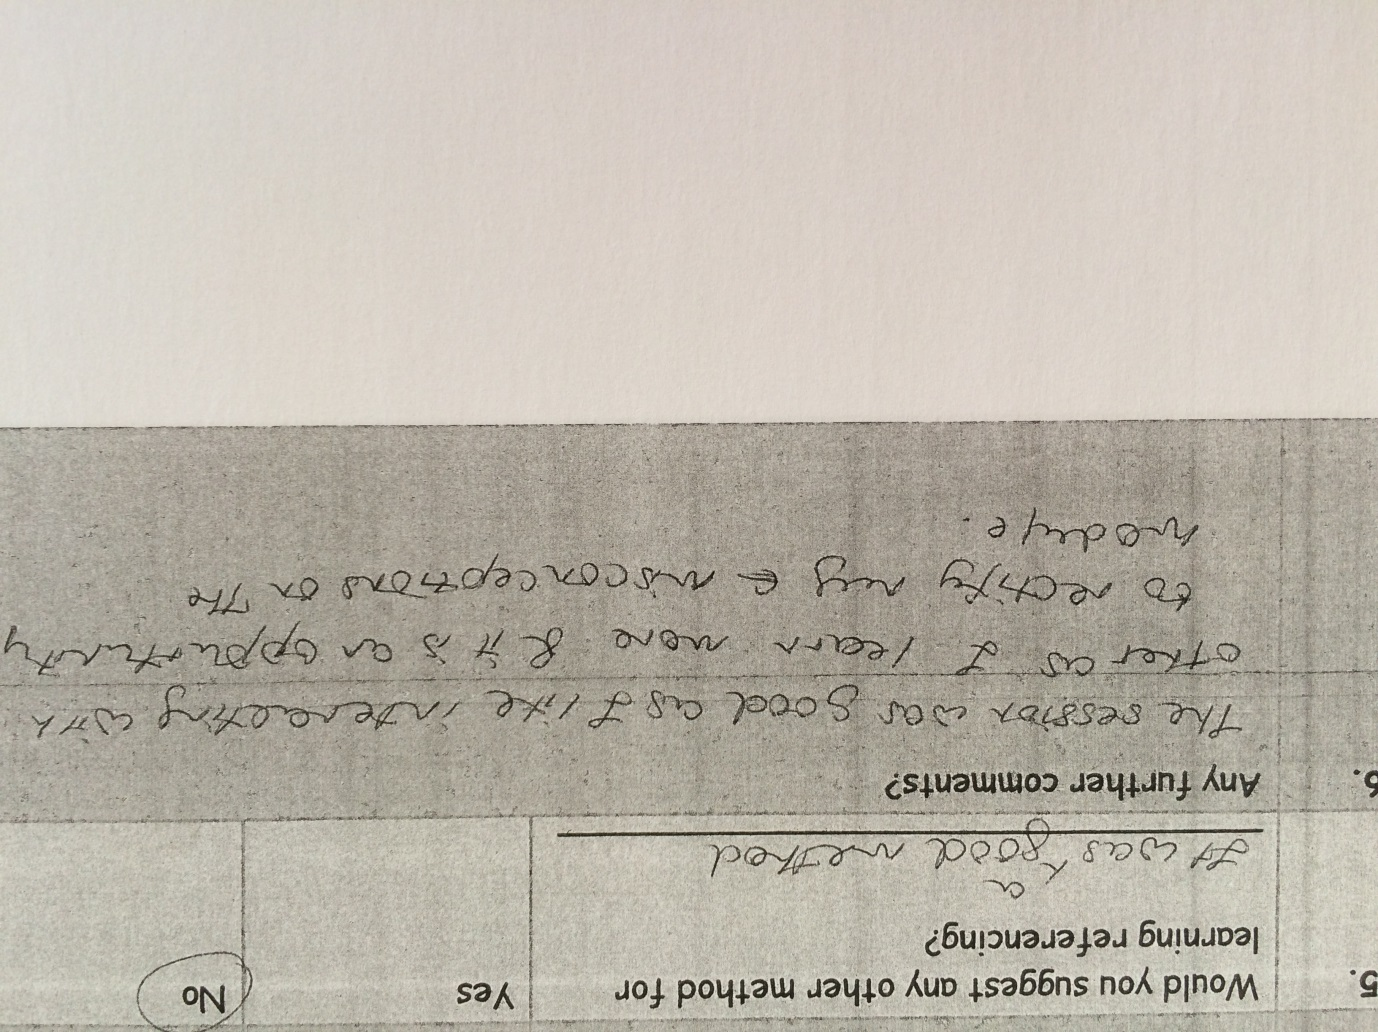 5. Would you suggest any other method for Yes No
learning referencing?
It was a good method
6. Any further comments?
The session was good as I like interacting with
other as I learn more & it is an oppurtunity
to rectify my misconceptions on the
module.